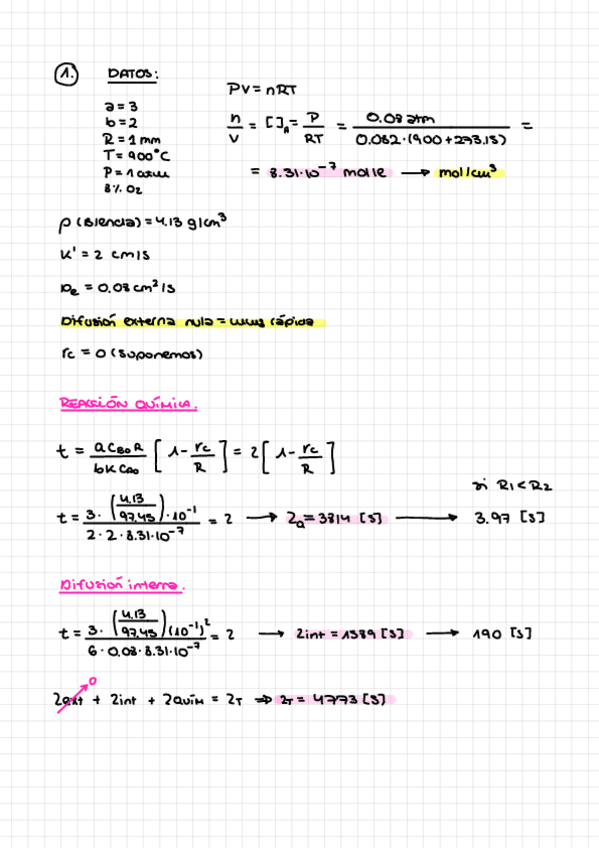 1. DATOS:
a = 3
b = 2
R = 1 mm
T = 900°C
P = 1 atm
8% O2
PV = nRT
n/V = [ ]A = P/RT = 0.08 atm / 0.082·(900+273.15) =
= 8.31·10^-7 mol/e → mol/cm³
ρ (Blenda) = 4.13 g/cm³
K' = 2 cm/s
De = 0.08 cm²/s
Difusión externa nula = muy rápida
rc = 0 (suponemos)
REACCIÓN QUÍMICA.
t = aCB0R / bKCA0 [1 - rc/R] = 2[1 - rc/R]
si R1 < R2
t = 3·(4.13/97.45)·10^-1 / 2·2·8.31·10^-7 = 2 → 2a = 3814 [s] → 3.97 [s]
Difusión interna.
t = 3·(4.13/97.45)(10^-1)² / 6·0.08·8.31·10^-7 = 2 → 2int = 1589 [s] → 190 [s]
2ext 0 + 2int + 2quím = 2T ⇒ 2T = 4773 [s]